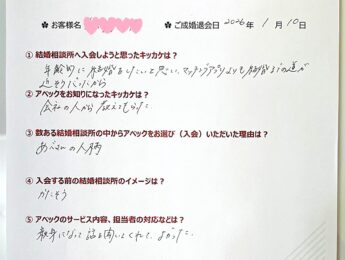 ✿お客様名 ✿ご成婚退会日 2026 年 1 月 10 日
①結婚相談所へ入会しようと思ったキッカケは？
年齢的に結婚をしたいと思い、マッチングアプリよりも結婚までの道が
近そうだったから
②アベックをお知りになったキッカケは？
会社の人から教えてもらった
③数ある結婚相談所の中からアベックをお選び（入会）いただいた理由は？
の人柄
④入会する前の結婚相談所のイメージは？
かたそう
⑤アベックのサービス内容、担当者の対応などは？
親身になって話を聞いてくれて、よかった